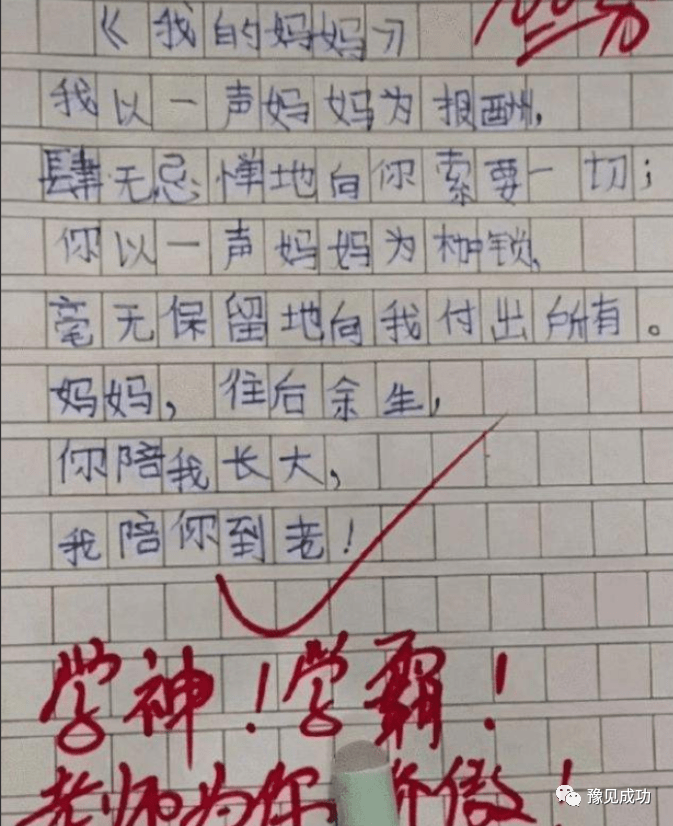 《我的妈妈》 100分
我以一声妈妈为报酬,
肆无忌惮地向你索要一切;
你以一声妈妈为枷锁,
毫无保留地向我付出所有。
妈妈,往后余生,
你陪我长大,
我陪你到老!
学神!学霸!
老师为你 傲!
豫见成功